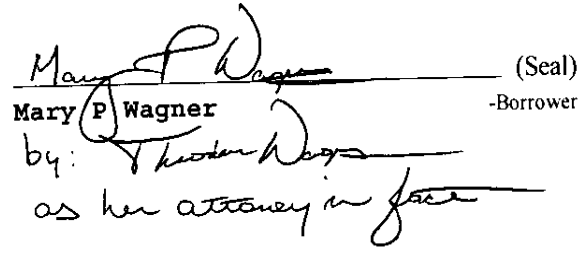 Mary P Wagner (Seal)
Mary P Wagner -Borrower
by: Theodore Wagner
as her attorney in fact